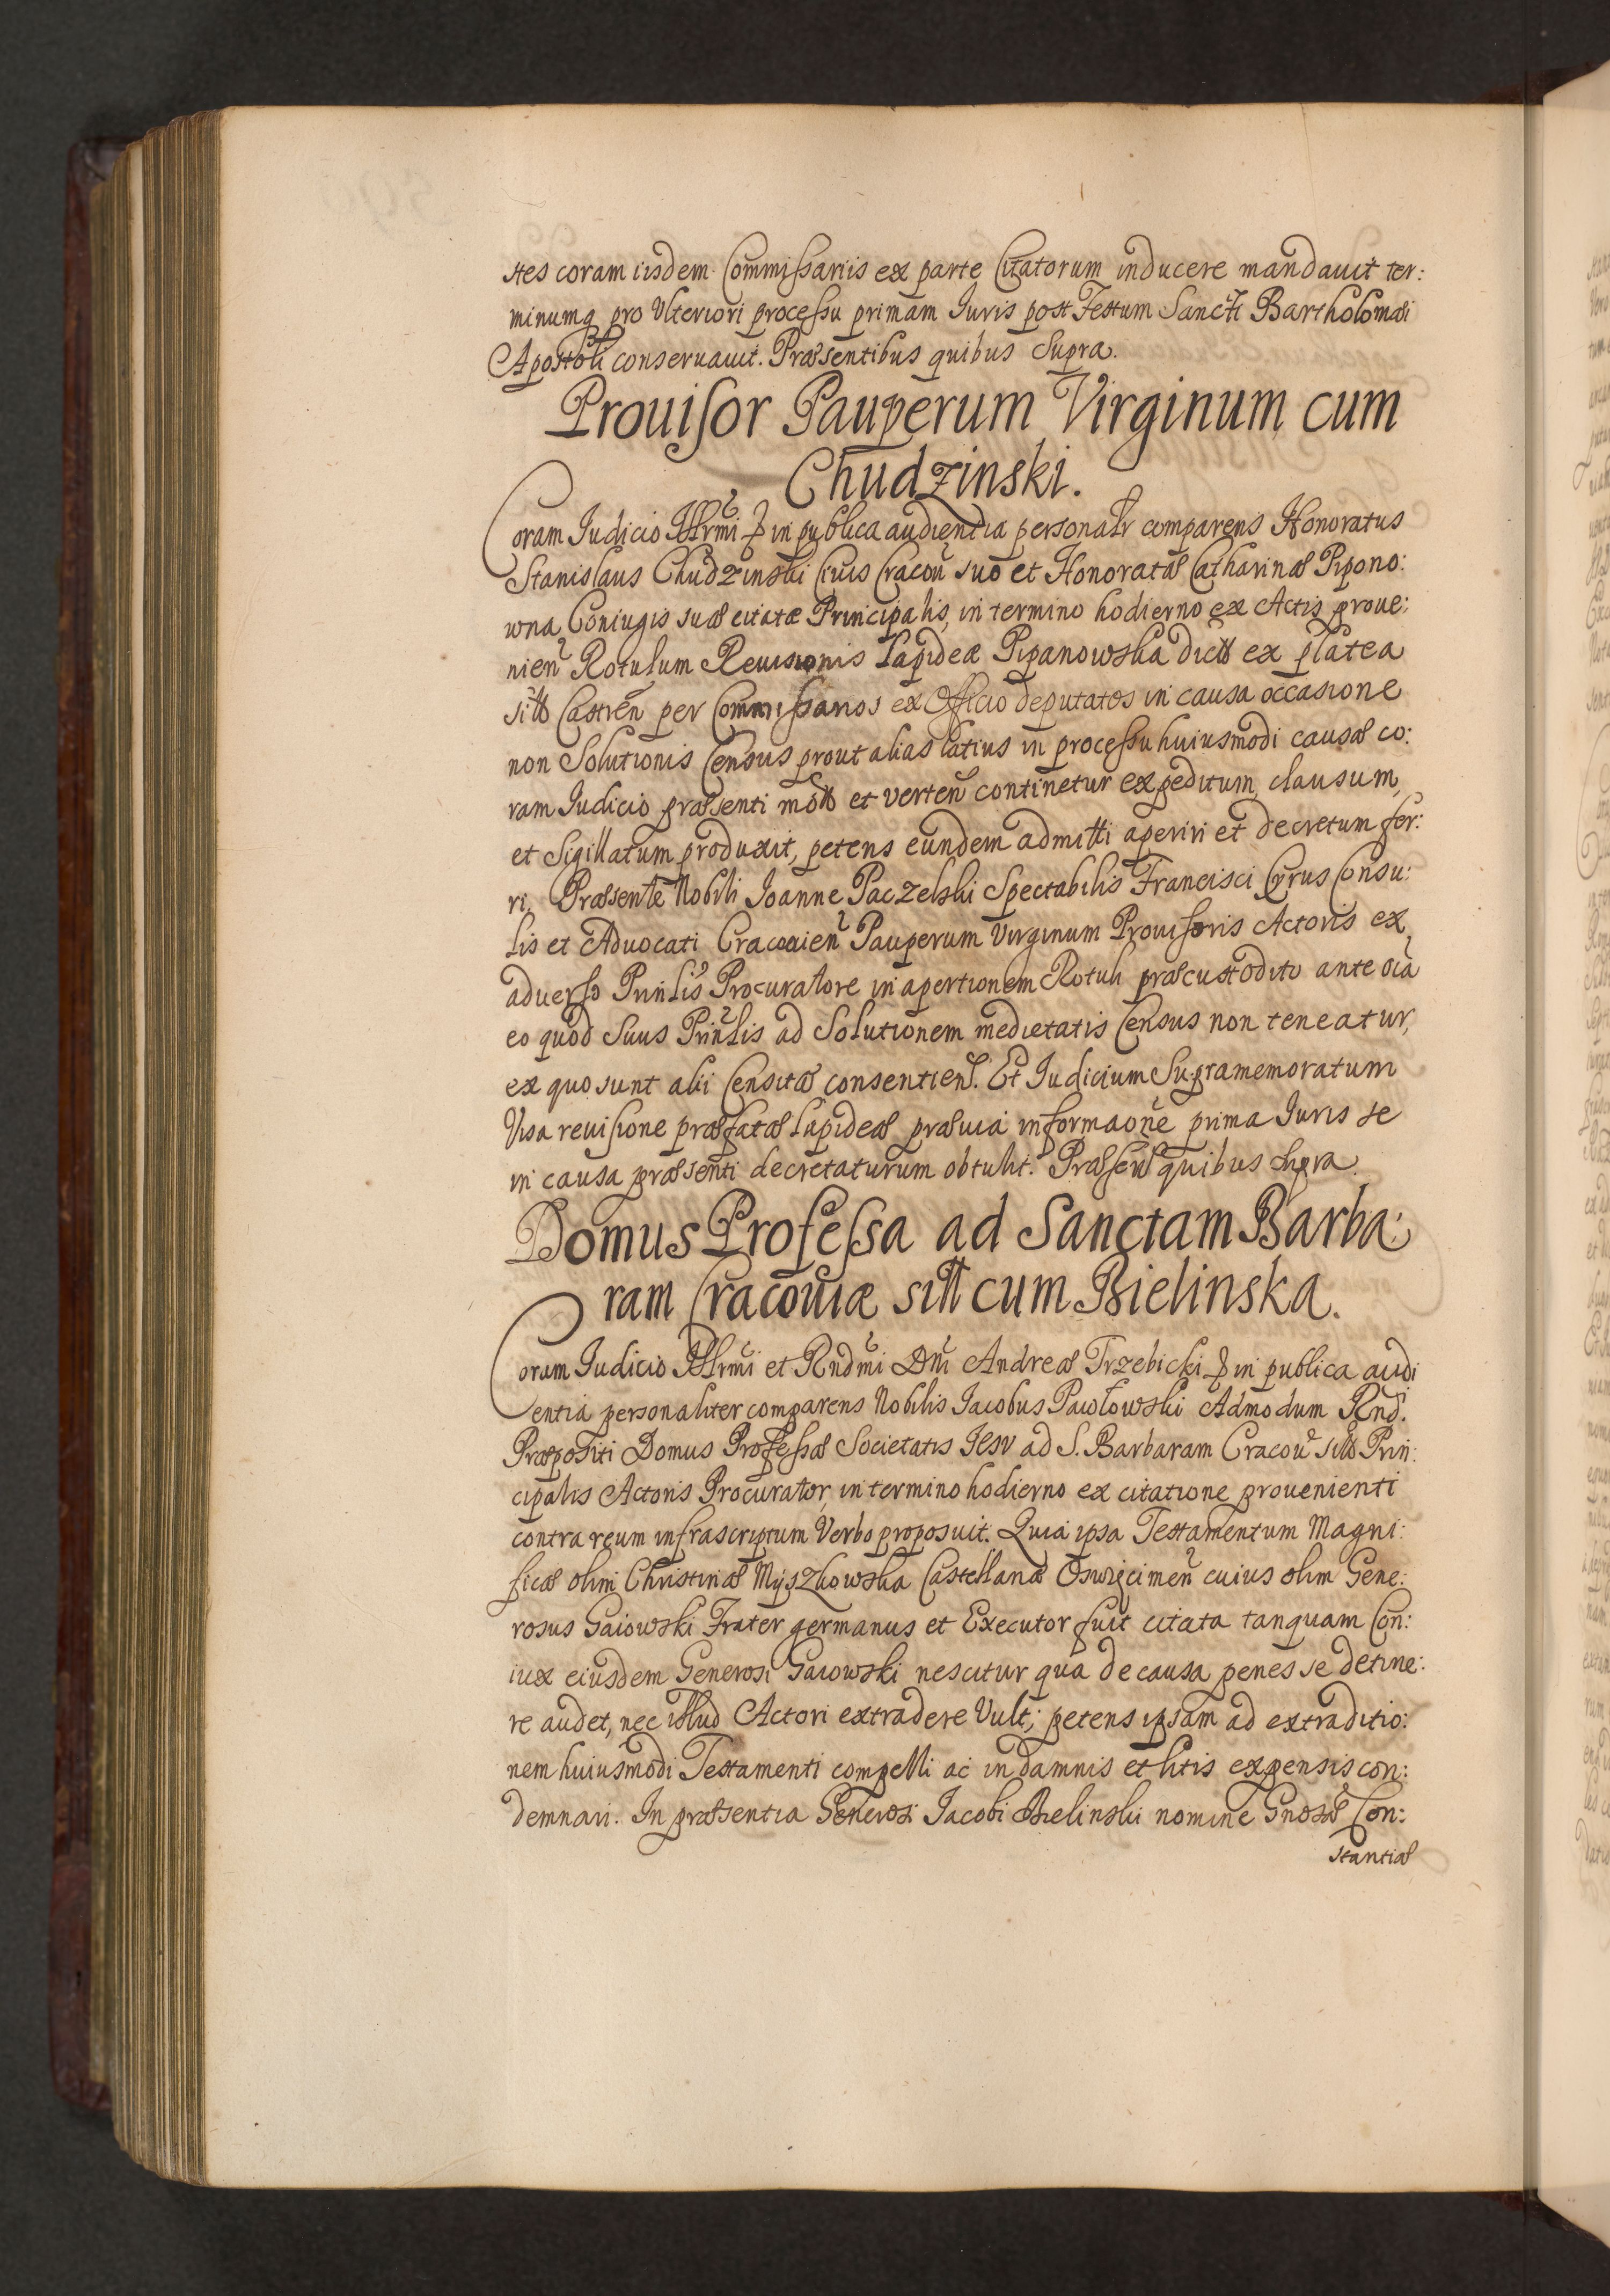 stes coram iisdem Commissariis ex parte Citatorum inducere mandauit ter:
minumq pro Vlteriori processu primam Iuris post Festum Sancti Bartholomæi
Apostoli conseruauit. Præsentibus quibus Supra.
Prouisor Pauperum Virginum cum
Chudzinski.
Coram Iudicio Illrmi in publica audientia personalr comparens Honoratus
Stanislaus Chudzinski Ciuis Cracou suo et Honoratæ Catharinæ Pipono:
wna Coniugis suæ citatæ Principalis, in termino hodierno ex Actis proue:
nien Rotulum Reuisionis Lapideæ Pipanowska dictæ ex platea
sitæ Castren per Commissarios ex Officio deputatos in causa occasione
non Solutionis Census prout alias latius in processu huiusmodi causæ co:
ram Iudicio præsenti motæ et verten continetur expeditum, clausum,
et Sigillatum produxit, petens eundem admitti aperiri et decretum fer:
ri. Præsente Nobili Ioanne Paczelski Spectabilis Francisci Cyrus Consu:
lis et Aduocati Cracouien Pauperum Virginum Prouisoris Actoris ex
aduerso Prinlis Procuratore in apertionem Rotuli præcustodito ante oia
eo quod suus Prinlis ad Solutionem medietatis Census non teneatur,
ex quo sunt alii Censitæ consentien. Et Iudicium Supramemoratum
Visa reuisione præfatæ Lapideæ præuia informaone prima Iuris se
in causa præsenti decretaturum obtulit. Præsen quibus supra.
Domus Professa ad Sanctam Barba:
ram Cracouiæ sitt cum Bielinska.
Coram Iudicio Illrmi et Rndmi Dni Andreæ Trzebicki in publica audi
entia personaliter comparens Nobilis Iacobus Pawłowski Admodum Rnd.
Præpositi Domus Professæ Societatis Iesv ad S. Barbaram Cracou sitæ Prin:
cipalis Actoris Procurator, in termino hodierno ex citatione prouenienti
contra reum infrascriptum Verbo proposuit. Quia ipsa Testamentum Magni:
ficæ olim Christinæ Myszkowska Castellanæ Oswięcimen cuius olim Gene:
rosus Gaiowski Frater germanus et Executor fuit citata tanquam Con:
iux eiusdem Generosi Gaiowski nescitur qua de causa penes se detine:
re audet, nec illud Actori extradere Vult; petens ipsam ad extraditio:
nem huiusmodi Testamenti compelli ac in damnis et litis expensis con:
demnari. In præsentia Generosi Iacobi Bielinski nomine Gnosæ Con:
stantiæ